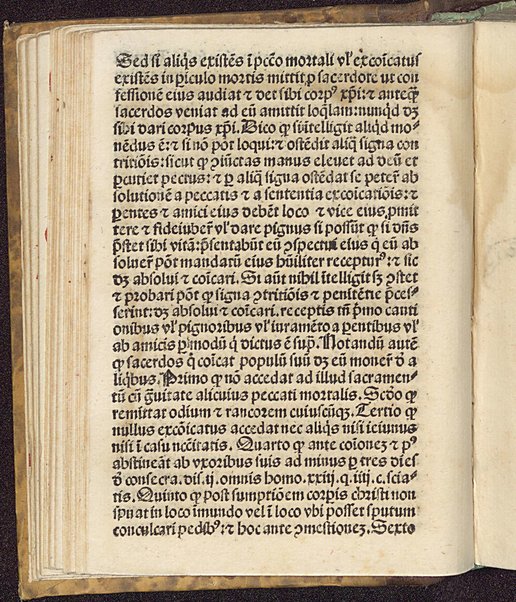 Sed si aliq̃s existẽs ĩ pctõ mortali vľ excoĩcatus
existẽs in ꝑiculo mortis mittit ꝓ sacerdote ut con
fessionẽ eius audiat ⁊ det sibi corpꝰ xp̃i: ⁊ anteq̃
sacerdos veniat ad eũ amittit loq̃lam: nunq̃d dꝫ
sibi dari corpus xp̃i. Dico ꝙ si ĩtelligit aliq̃d mo⸗
nẽdus ẽ: ⁊ si nõ põt loqui: ⁊ oñdit aliq̃ signa con
tritiõis: sicut ꝙ iũctas manus eleuet ad deũ et
ꝑcutiet pectus: ⁊ ꝑ aliq̃ signa ostẽdat se peteř ab
solutionẽ a peccatis ⁊ a sententia excoĩcatiõis: ⁊
ꝑentes ⁊ amici eius debẽt loco ⁊ vice eius, ꝓmit
tere ⁊ fideiubeř vľ dare pignus si possũt ꝙ si dñs
p̃stet sibi vitã: p̃sentabũt eũ ꝯspectui eius q̃ eũ ab
solueř põt mandatũ eius hũiliter recepturꝰ: ⁊ sic
dꝫ absolui ⁊ coĩcari. Si aũt nihil ĩtelligit sꝫ ꝯstet
⁊ probari põt ꝙ signa ꝯtritiõis ⁊ penitẽtie p̃ces⸗
serint: dꝫ absolui ⁊ coĩcari, receptis tñ p̃mo canti
onibus vľ pignoribus vľ iuramẽto a ꝑentibus vľ
ab amicis ꝑ modũ q̃ dictus ẽ sup̃. Notandũ autẽ
ꝙ sacerdos q̃ coĩcat populũ suũ dꝫ eũ moneř ð a
liq̃bus. Primo ꝙ nõ accedat ad illud sacramen⸗
tũ cũ g̃uitate alicuius peccati mortalis. Scðo ꝙ
remittat odium ⁊ rancorem cuiuscũqꝫ. Tertio ꝙ
nullus excõicatus accedat nec aliq̃s nisi ieiunus
nisi ĩ casu ncc̃itatis. Quarto ꝙ ante coĩonez ⁊ pꝰ
abstineãt ab vxoribus suis ad minus ꝑ tres dies
ð consecra. di. ij. omnis homo. xxiij. q. iiij. c. scia⸗
tis. Quinto ꝙ post sumptiõem corꝑis christi non
spuat in loco ĩmundo vel ĩ loco vbi posset sputum
conculcari pedibꝰ: ⁊ hoc ante ꝯmestionez. Sexto